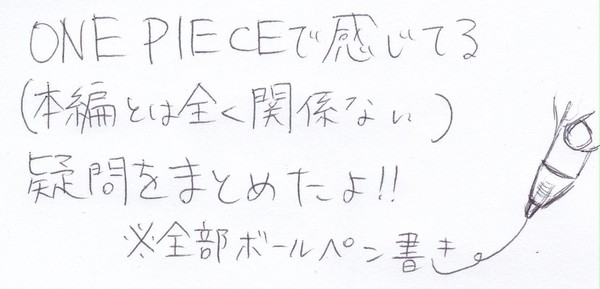 ONE PIECEで感じてる
(本編とは全く関係ない)
疑問をまとめたよ!!
※全部ボールペン書き